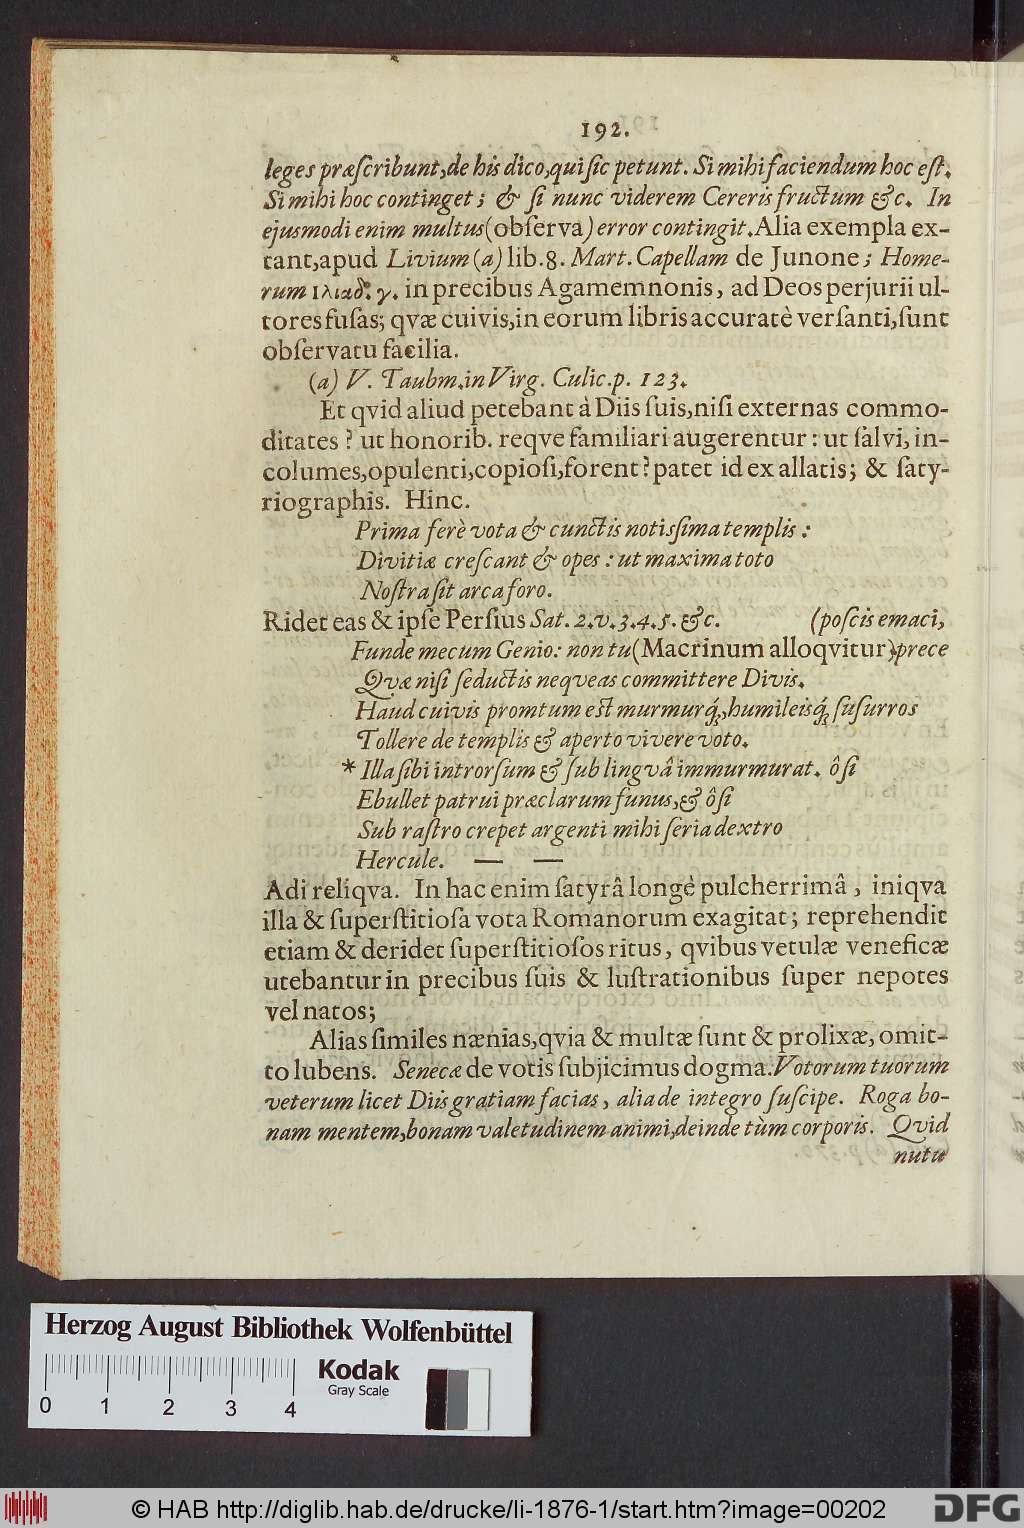 192.
leges præſcribunt, de his dico, qui ſic petunt. Si mihi faciendum hoc eſt.
Si mihi hoc continget; & ſi nunc viderem Cereris fructum &c. In
ejusmodi enim multus (obſerva) error contingit. Alia exempla ex-
tant, apud Livium (a) lib. 8. Mart. Capellam de Junone; Home-
rum ιλιαδ. γ. in precibus Agamemnonis, ad Deos perjurii ul-
tores fuſas; qvæ cuivis, in eorum libris accuratè verſanti, ſunt
obſervatu facilia.
(a) V. Taubm. in Virg. Culic. p. 123.
Et qvid aliud petebant à Diis ſuis, niſi externas commo-
ditates? ut honorib. reqve familiari augerentur: ut ſalvi, in-
columes, opulenti, copioſi, forent? patet id ex allatis; & ſaty-
riographis. Hinc.
Prima ferè vota & cunctis notiſſima templis:
Divitiæ creſcant & opes: ut maxima toto
Noſtra ſit arca foro.
Ridet eas & ipſe Perſius Sat. 2. v. 3. 4. 5. &c. (poſcis emaci,
Funde mecum Genio: non tu (Macrinum alloqvitur) prece
Quæ niſi ſeductis nequeas committere Divis.
Haud cuivis promtum eſt murmurq́;, humileisq́; ſuſurros
Tollere de templis & aperto vivere voto.
* Illa ſibi introrſum & ſub lingvâ immurmurat. ô ſi
Ebullet patrui præclarum funus, & ô ſi
Sub raſtro crepet argenti mihi ſeria dextro
Hercule. — —
Adi reliqva. In hac enim ſatyrâ longè pulcherrimâ, iniqva
illa & ſuperſtitioſa vota Romanorum exagitat; reprehendit
etiam & deridet ſuperſtitioſos ritus, qvibus vetulæ veneficæ
utebantur in precibus ſuis & luſtrationibus ſuper nepotes
vel natos;
Alias ſimiles nænias, qvia & multæ ſunt & prolixæ, omit-
to lubens. Senecæ de votis ſubjicimus dogma. Votorum tuorum
veterum licet Diis gratiam facias, alia de integro ſuſcipe. Roga bo-
nam mentem, bonam valetudinem animi, deinde tùm corporis. Qvìd
nutu
Herzog August Bibliothek Wolfenbüttel
Kodak
Gray Scale
0 1 2 3 4
© HAB http://diglib.hab.de/drucke/li-1876-1/start.htm?image=00202
DFG